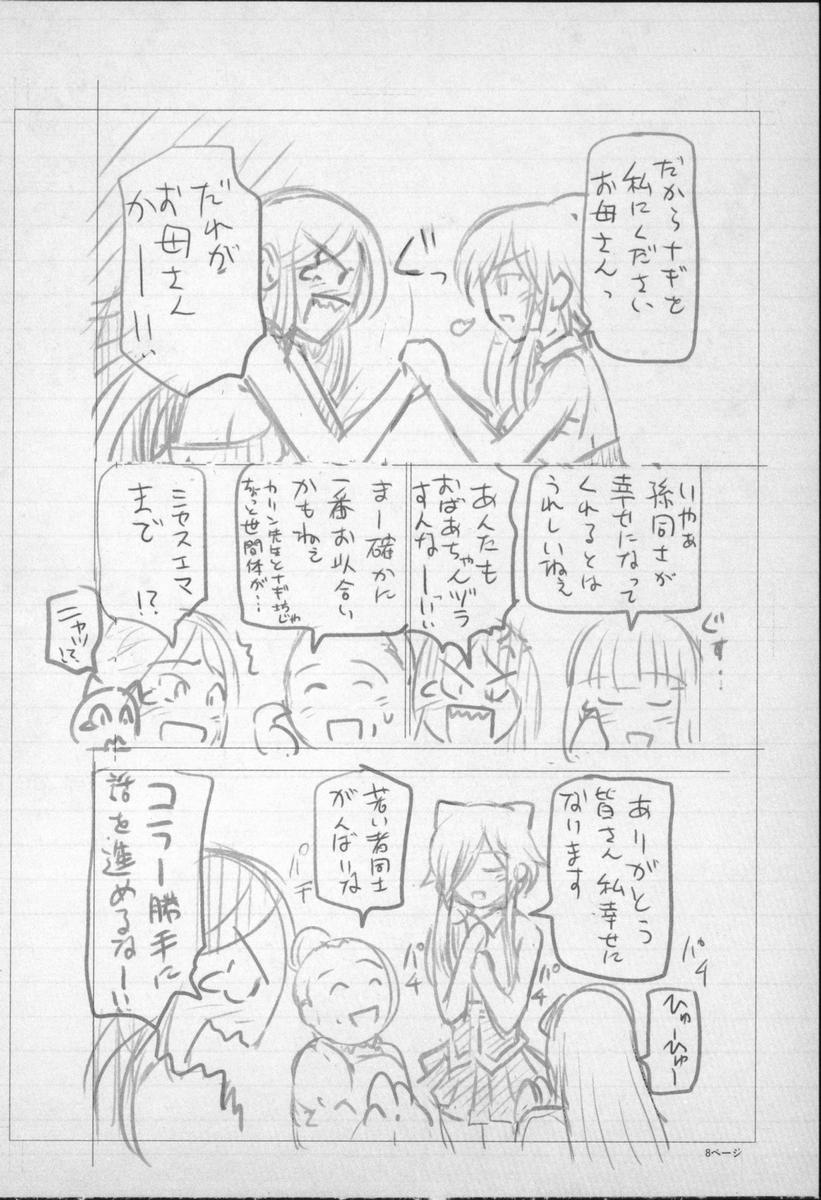 だからナギを
私にください
お母さんっ
ぐっ
だれが
お母さん
かーーーっ!!
いやぁ
孫同士が
幸せになって
くれるとは
うれしいねぇ
ぐす…
あんたも
おばあちゃんヅラ
すんなーっ!!
まー確かに
一番お似合い
かもねぇ
カリン先生とナギ坊じゃ
ちょっと世間体が…
ニャスエマ
まで
!?
ありがとう
皆さん 私幸せに
なります
パチ
パチ
パチ
パチ
ひゅーひゅー
若い者同士
がんばいな
コラー勝手に
話を進めるなーっ!!
8ページ